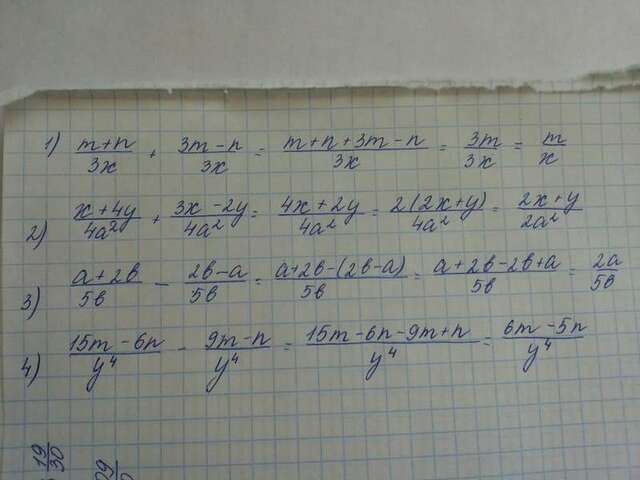 1) (m+n)/3x + (3m-n)/3x = (m+n+3m-n)/3x = 3m/3x = m/x
2) (x+4y)/4a² + (3x-2y)/4a² = (4x+2y)/4a² = 2(2x+y)/4a² = (2x+y)/2a²
3) (a+2в)/5в - (2в-a)/5в = (a+2в-(2в-a))/5в = (a+2в-2в+a)/5в = 2a/5в
4) (15m-6n)/y⁴ - (9m-n)/y⁴ = (15m-6n-9m+n)/y⁴ = (6m-5n)/y⁴
19/30